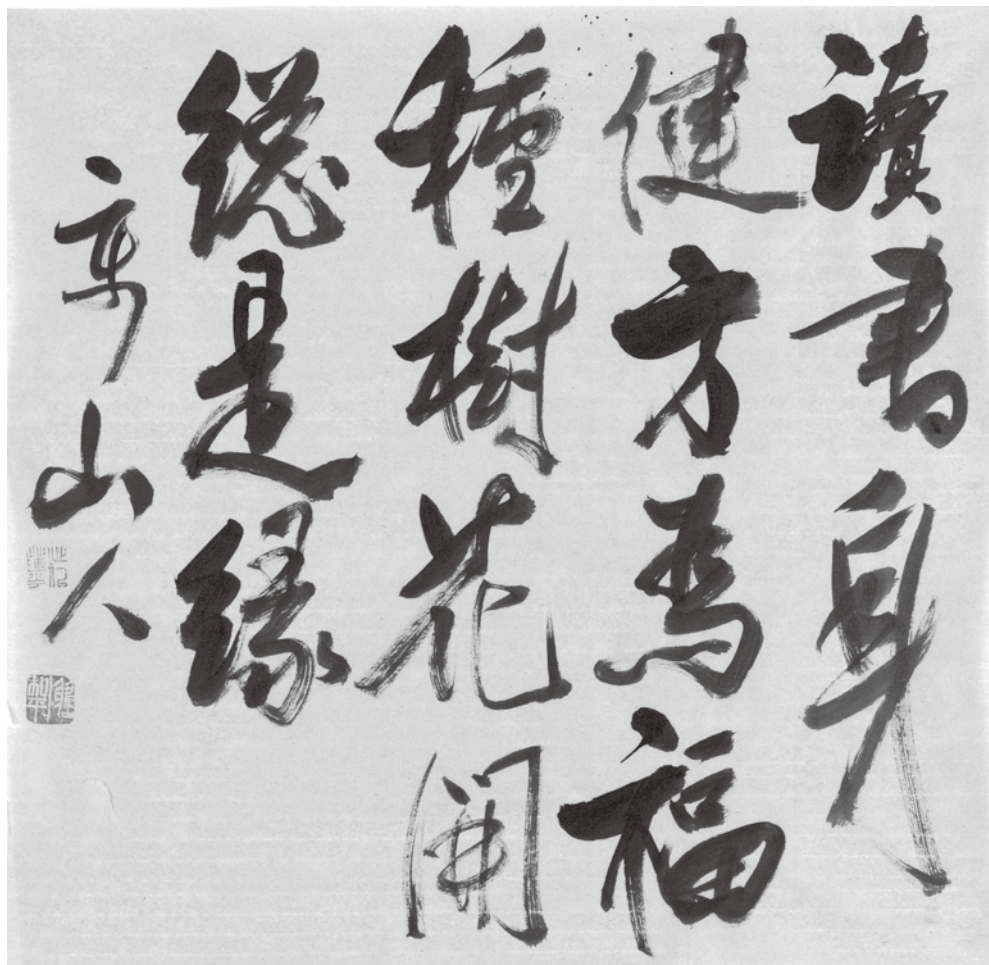 讀書身
健方為福
種樹花開
總是緣
章山人